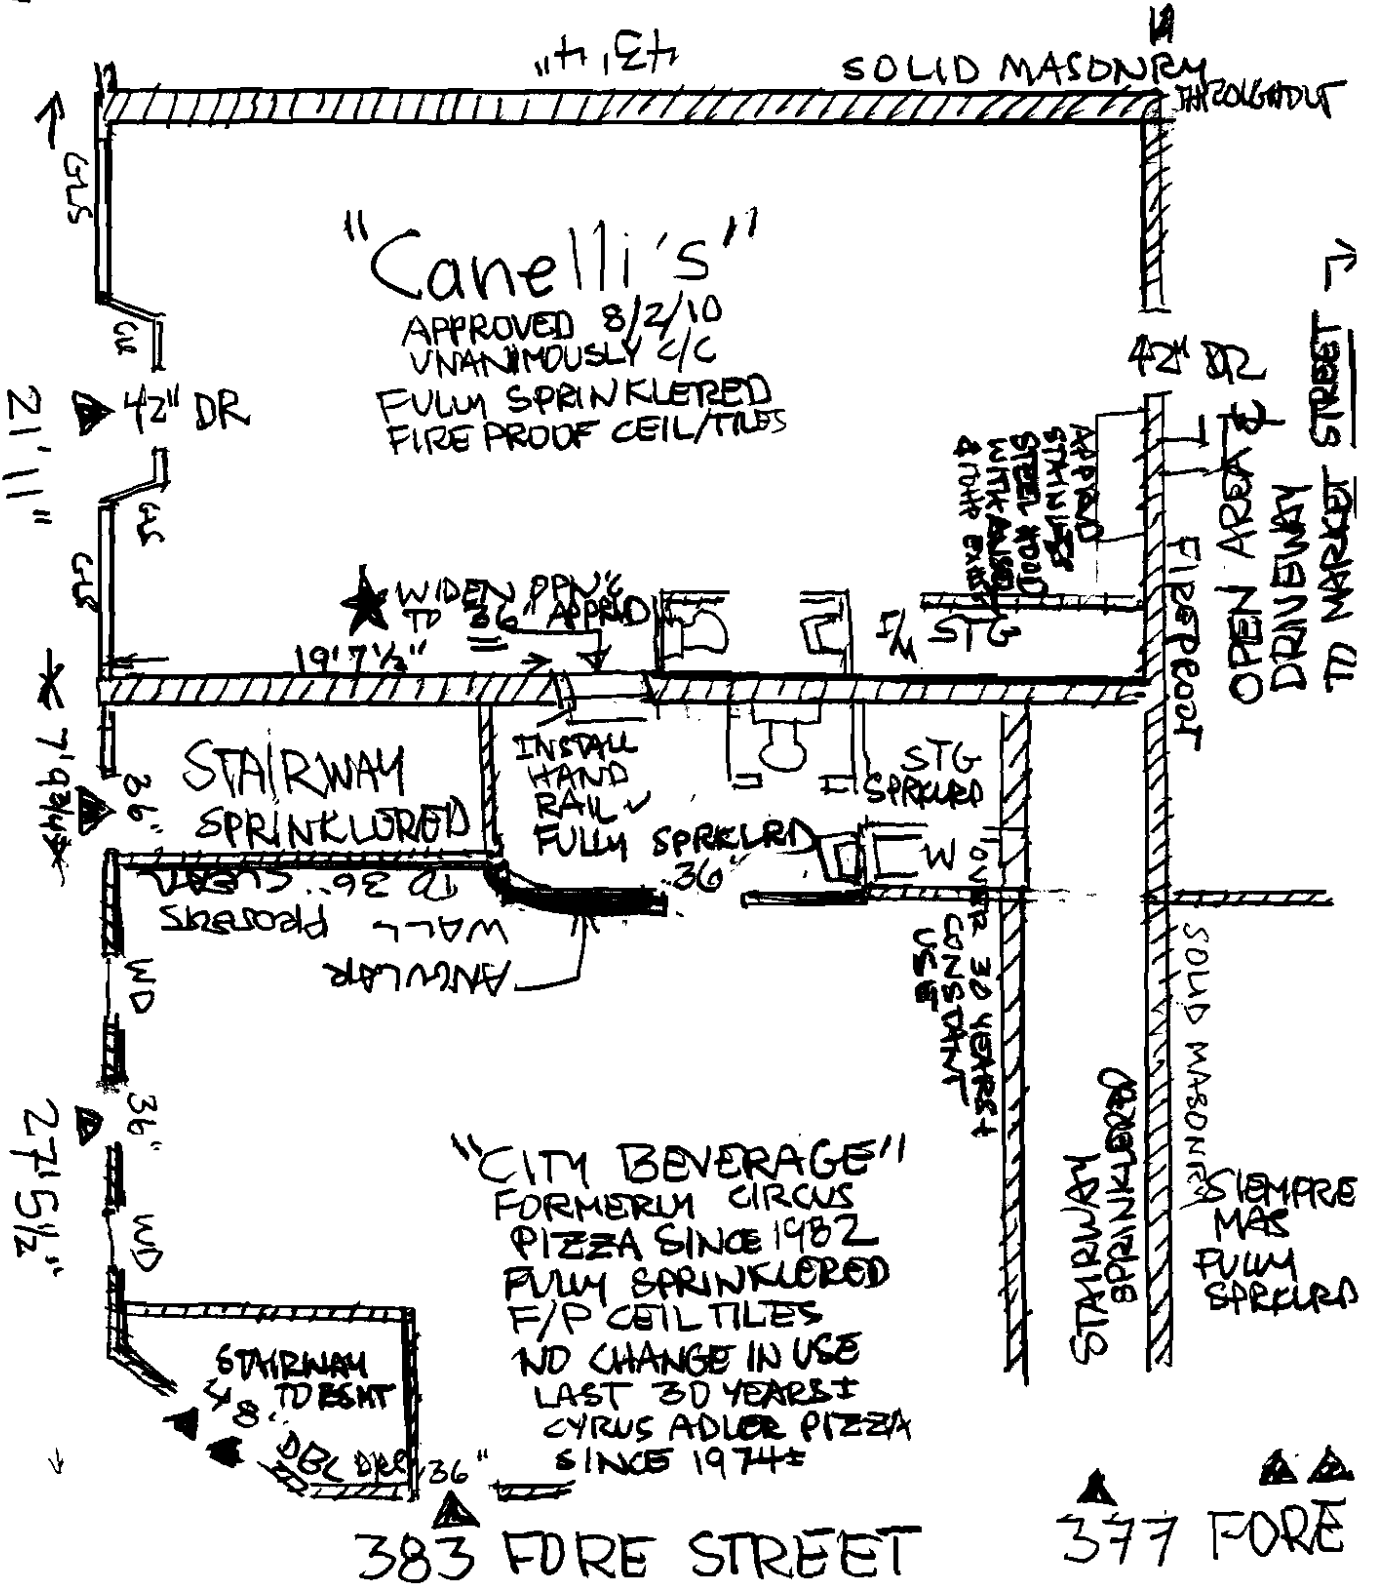 43' 4"
SOLID MASONRY
THROUGHOUT
GLS
"Canelli's"
APPROVED 8/2/10
UNANIMOUSLY C/C
FULLY SPRINKLERED
FIRE PROOF CEIL/TILES
GLS
42" DR
GLS
GLS
21' 11"
42" DR
APPRVD
STAINLESS
STEEL HOOD
WITH ANSEL
OPEN AREA &
DRIVEWAY
TO MARKET STREET
FIREPROOF
WIDEN OPN'G
TO 36" APPRVD
19' 7 1/2"
STG
7' 9 3/4"
36"
STAIRWAY
SPRINKLURED
INSTALL
HAND
RAIL
FULLY SPRKLRD
36"
STG
SPRKLRD
W
ANGULAR
WALL
PRESENTS
TO 36" CLEAR
OVER 30 YEARS ±
CONSTANT
USE
WD
36"
WD
27' 5 1/2"
SOLID MASONRY
STAIRWAY
SPRINKLERED
SIEMPRE
MAS
FULLY
SPRKLRD
"CITY BEVERAGE"
FORMERLY CIRCUS
PIZZA SINCE 1982
FULLY SPRINKLERED
F/P CEIL TILES
NO CHANGE IN USE
LAST 30 YEARS ±
CYRUS ADLER PIZZA
SINCE 1974±
STAIRWAY
TO BSMT
48"
DBL DRR
36"
383 FORE STREET
377 FORE